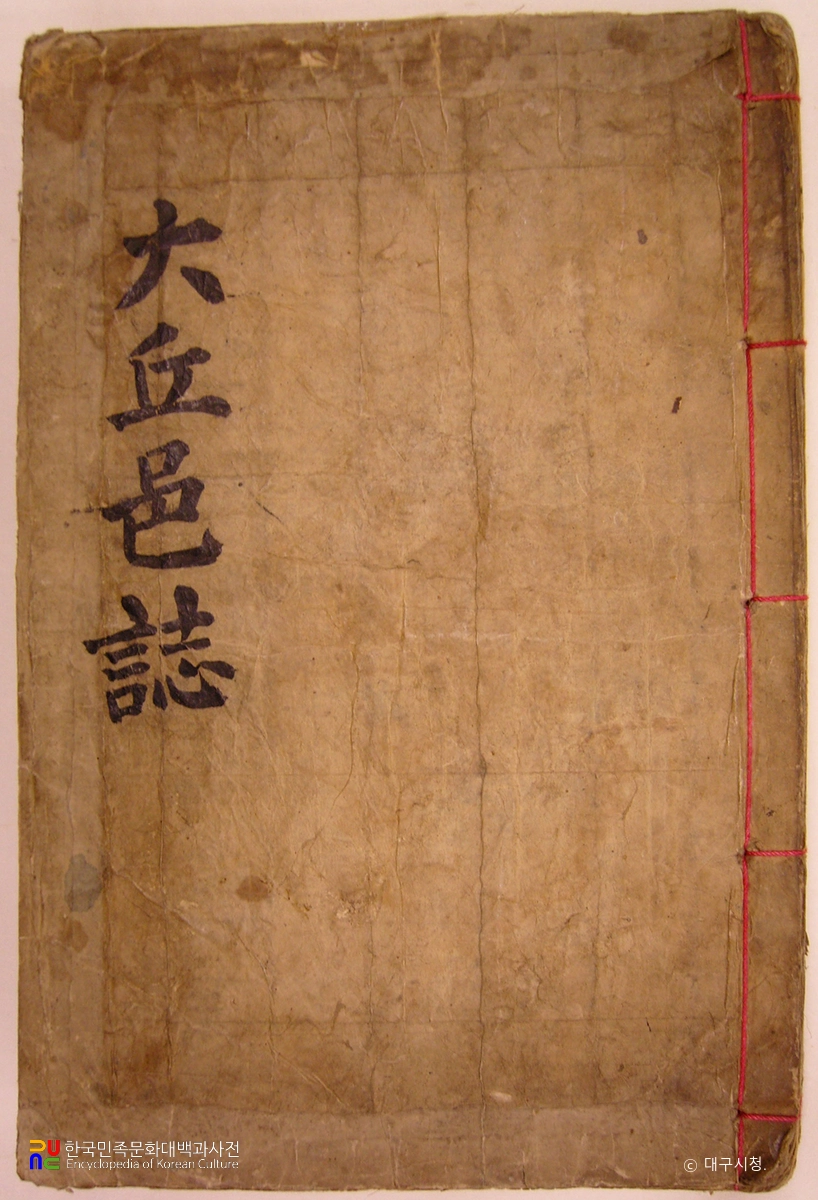 大丘邑誌
한국민족문화대백과사전
Encyclopedia of Korean Culture
ⓒ 대구시청.